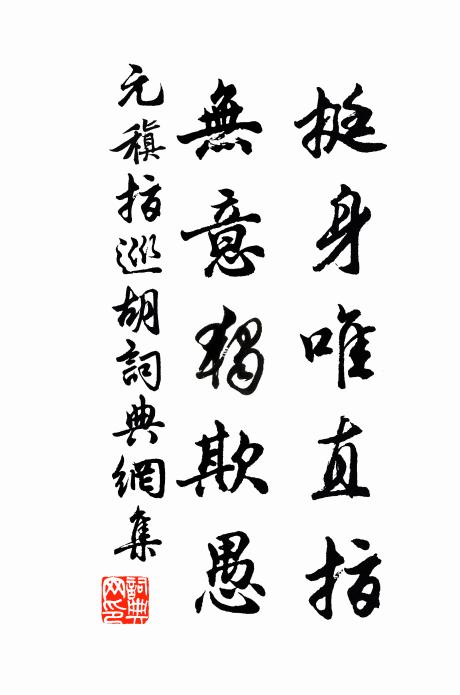 挺身唯直指
無意獨欺愚
元稹指巡胡詞典網集
詞典網印